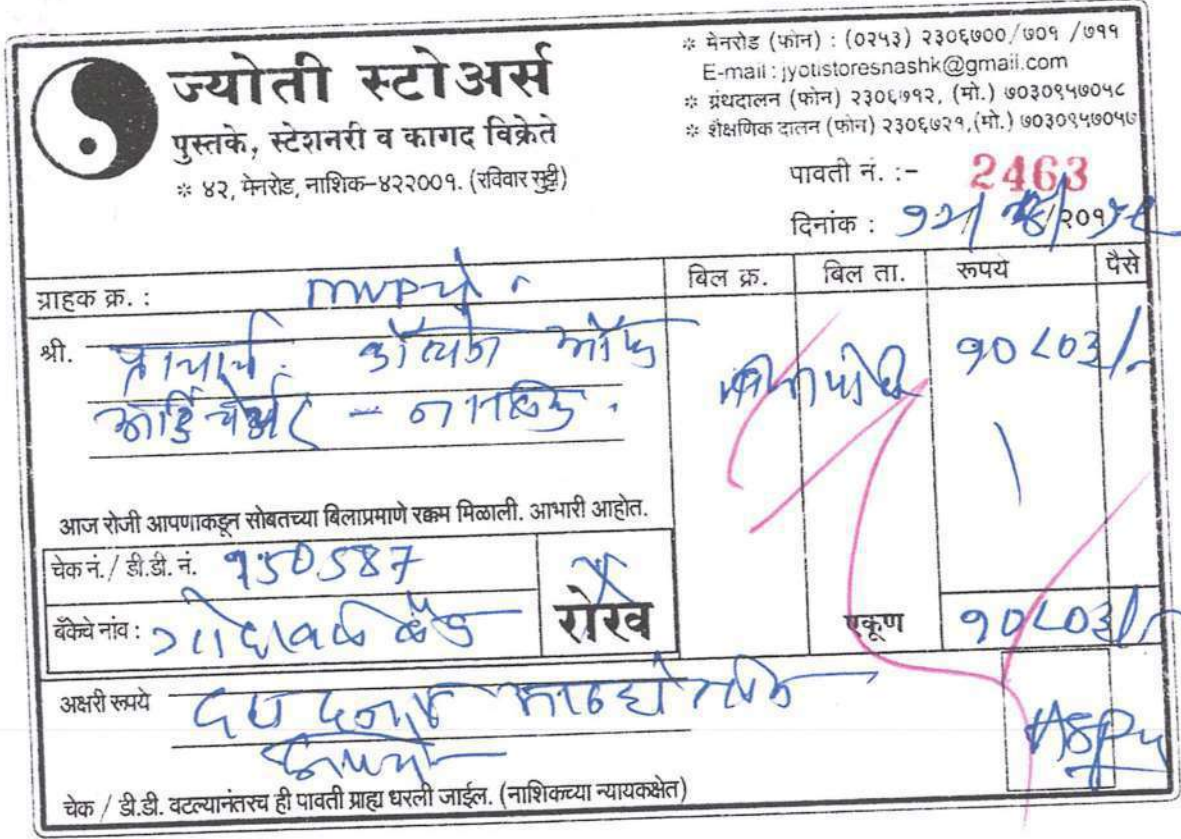 ज्योती स्टोअर्स
पुस्तके, स्टेशनरी व कागद विक्रेते
❊ ४२, मेनरोड, नाशिक-४२२००१. (रविवार सुट्टी)
❊ मेनरोड (फोन) : (०२५३) २३०६७००/७०१ /७११
E-mail : jyotistoresnashk@gmail.com
❊ ग्रंथदालन (फोन) २३०६७१२, (मो.) ७०३०९५७०५८
❊ शैक्षणिक दालन (फोन) २३०६७२१,(मो.) ७०३०९५७०५७
पावती नं. :- 2463
दिनांक : १२/ /२०१
ग्राहक क्र. : mvpचे बिल क्र. बिल ता. रूपये पैसे
श्री. प्राचार्य. कॉलेज ऑफ १०८०३/-
आर्किटेक्चर - नाशिक.
आज रोजी आपणाकडून सोबतच्या बिलाप्रमाणे रक्कम मिळाली. आभारी आहोत.
चेक नं. / डी.डी. नं. 950587
बँकेचे नांव : गोदावरी बँक रोख एकूण १०८०३/-
अक्षरी रूपये दहा हजार आठशे तीन
रुपये
चेक / डी.डी. वटल्यानंतरच ही पावती ग्राह्य धरली जाईल. (नाशिकच्या न्यायकक्षेत)